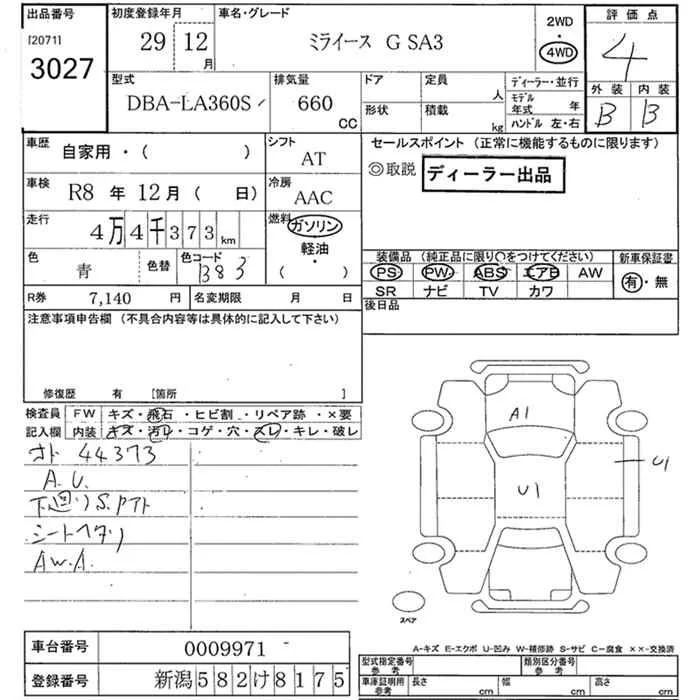 出品番号 初度登録年月 車名・グレード 2WD 評価点
[2071] 3027 29 12月 ミライース G SA3 4WD 4
型式 排気量 ドア 定員 人 ディーラー・並行 外装 内装
DBA-LA360S 660CC 形状 積載 kg モデル年式 年 B B
ハンドル 左・右
車歴 自家用・( ) シフト AT セールスポイント (正常に機能するものに限ります)
◎取説 ディーラー出品
車検 R8年12月( 日) 冷房 AAC
走行 4万4千373km 燃料 ガソリン
軽油・
( )
色 青 色替 色コード B83 装備品 (純正品に限り○をつけてください) 新車保証書
PS PW ABS エアB AW 有・無
SR ナビ TV カワ
R券 7,140円 名変期限 月 日 後日品
注意事項申告欄 (不具合内容等は具体的に記入して下さい)
修復歴 有 [箇所 ]
検査員 FW キズ・飛石・ヒビ割・リペア跡・×要
記入欄 内装 キズ・汚レ・コゲ・穴・スレ・キレ・破レ
オド 44373
A.U.
下廻りS.
シートヘタリ
A.W.A.
A1
U1
U1
スペア
A-キズ E-エクボ U-凹み W-補修跡 S-サビ C-腐食 ××-交換済
車台番号 0009971
登録番号 新潟582け8175
型式指定番号 参考 類別区分番号 参考
車庫証明用 参考 長さ cm 幅 cm 高さ cm